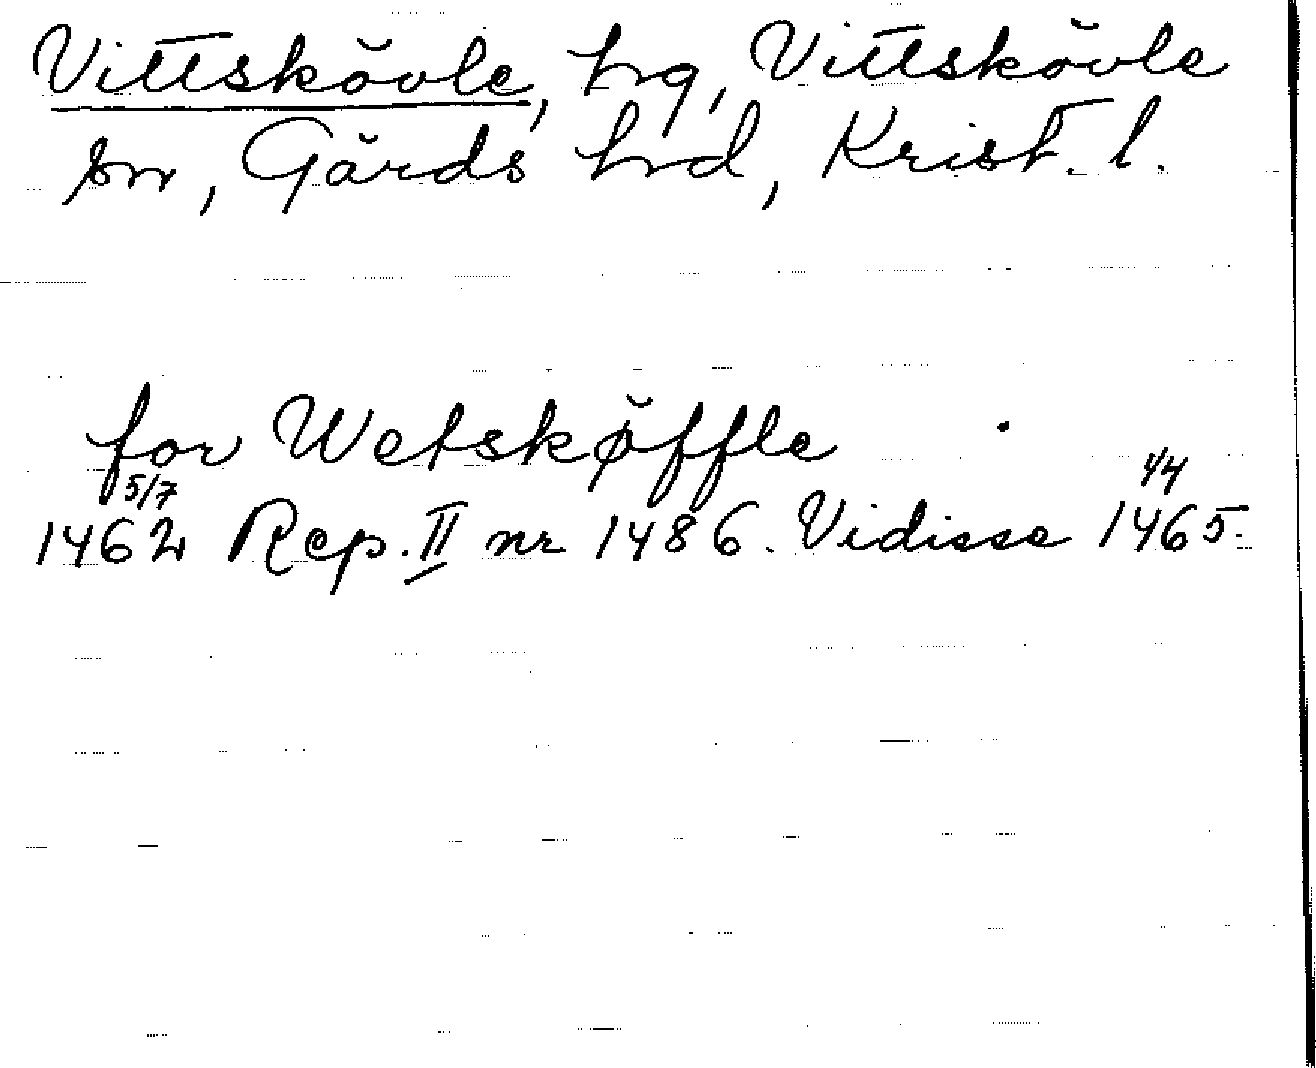 Vittskövle, hg, Vittskövle
sn, Gärds hd, Krist. l.
for Wetskø̆ffle
5/7 1/4
1462 Rep. II nr 1486. Vidisse 1465.